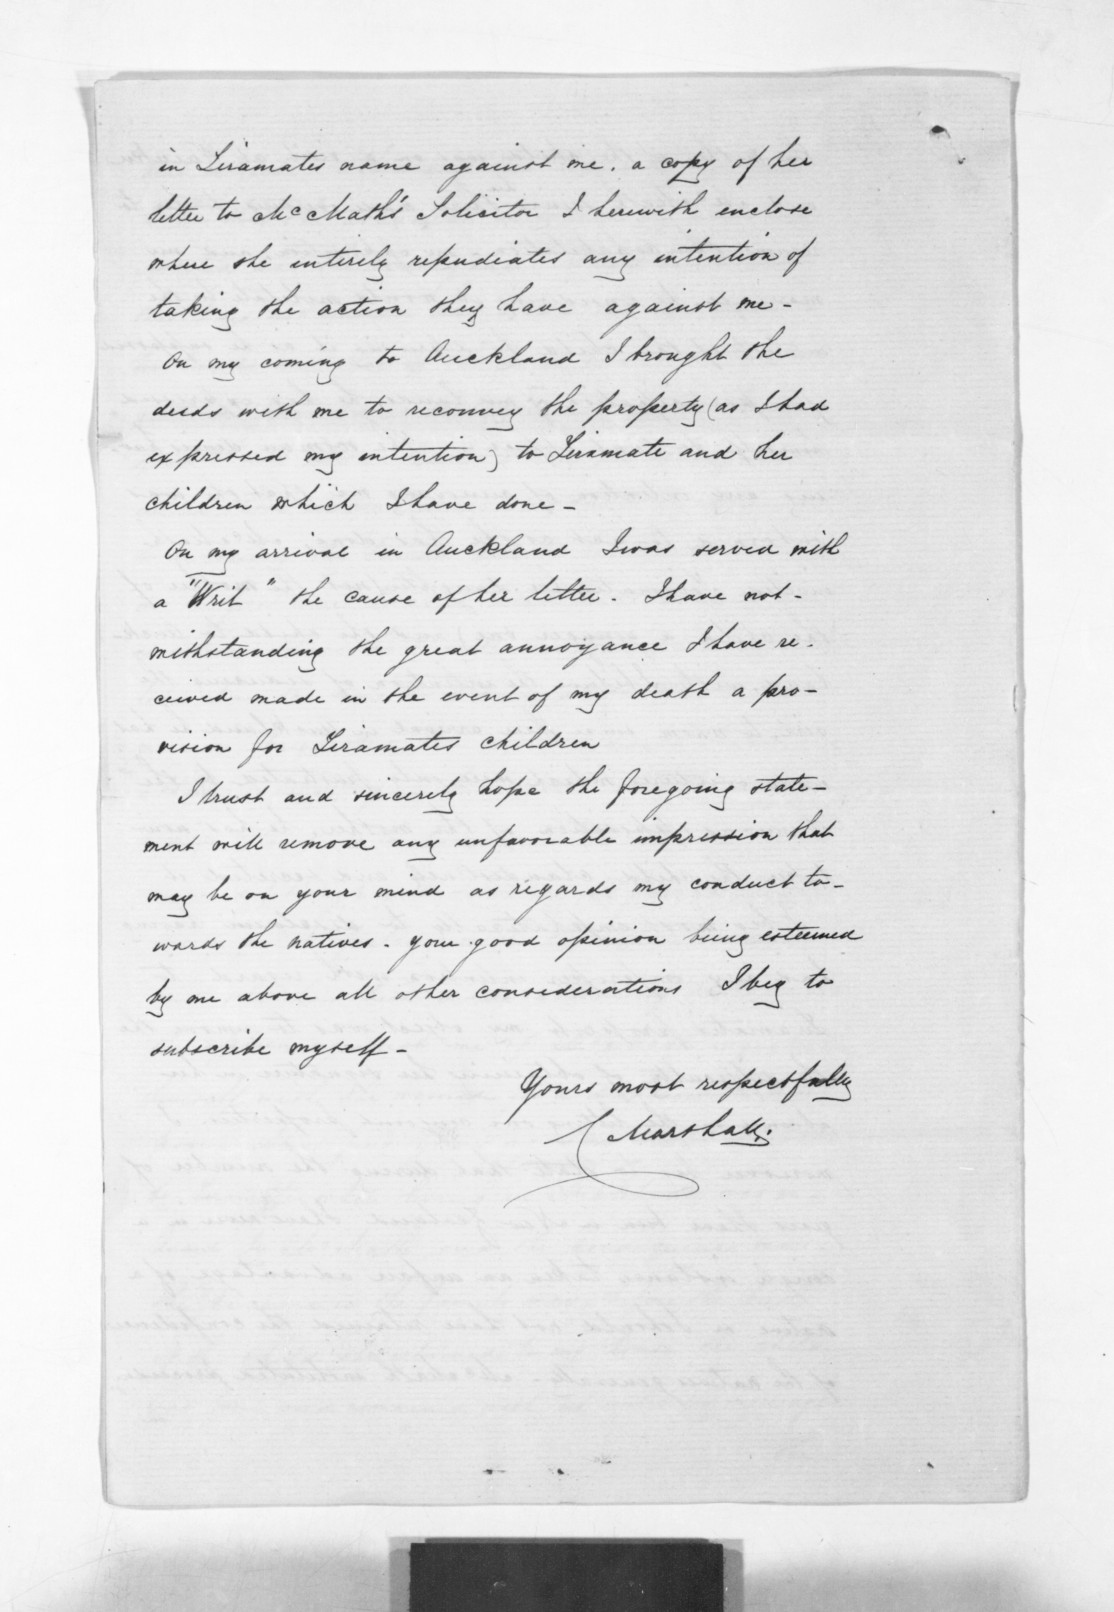 in Liramates name against me. a copy of her
letter to McMath's Solicitor I herewith enclose
where she entirely repudiates any intention of
taking the action they have against me -
On my coming to Auckland I brought the
deeds with me to reconvey the property (as I had
expressed my intention) to Liramate and her
children which I have done -
On my arrival in Auckland I was served with
a "Writ" the cause of her letter. I have not-
withstanding the great annoyance I have re-
ceived made in the event of my death a pro-
vision for Liramates children
I trust and sincerely hope the foregoing state-
ment will remove any unfavorable impression that
may be on your mind as regards my conduct to-
wards the natives - your good opinion being esteemed
by me above all other considerations I beg to
subscribe myself -
Yours most respectfully
C Marshall.